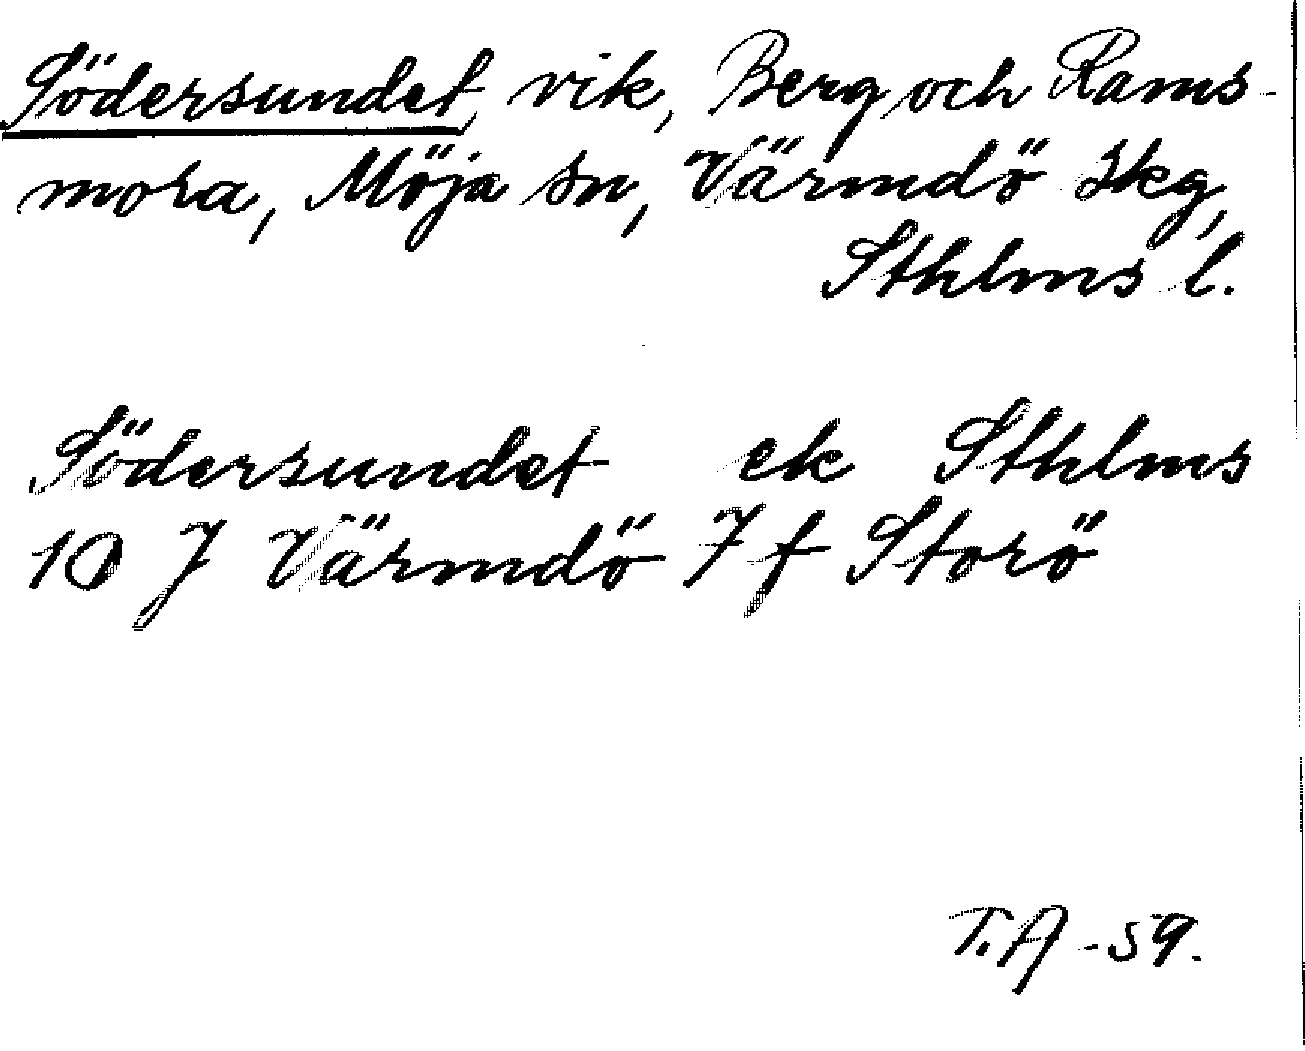 Södersundet, vik, Berg och Rams-
mora, Möja sn, Värmdö skg,
Sthlms l.
Södersundet ek Sthlms
10 J Värmdö 7 f Storö
T.A -59.